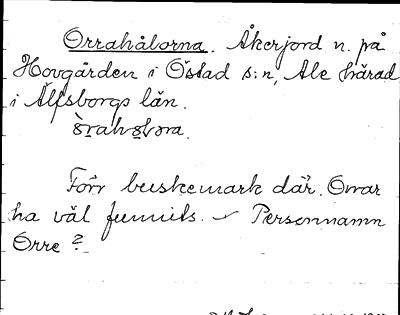 Orrahålorna. Åkerjord n. på
Hovgården i Östad s:n, Ale härad
i Älfsborgs län.
Förr buskemark där. Orrar
ha väl funnits. Personnamn
Orre?